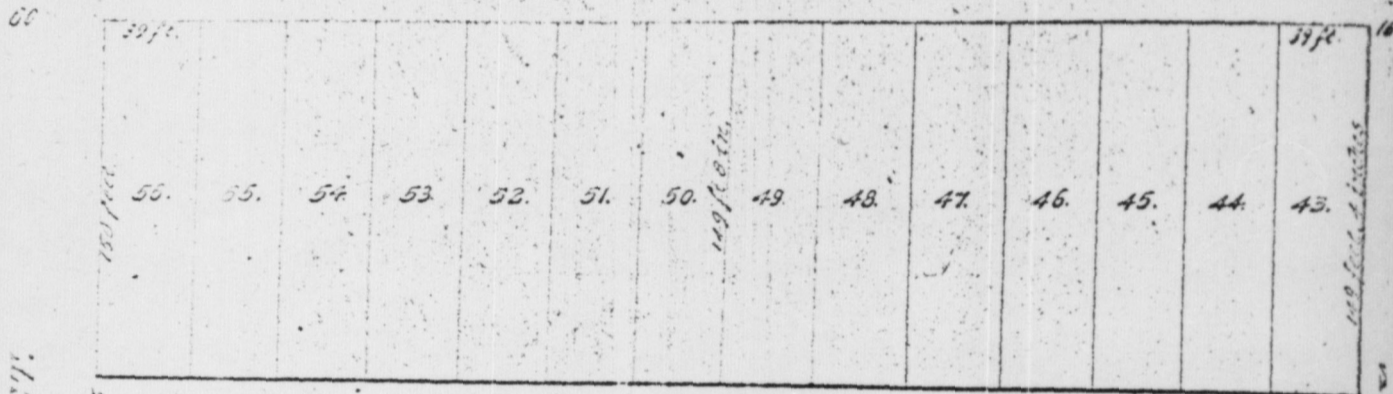 60 39 ft. 39 ft. 16
150 feet 56. 55. 54. 53. 52. 51. 50. 149 ft 8 in. 49. 48. 47. 46. 45. 44. 43. 149 feet 4 inches